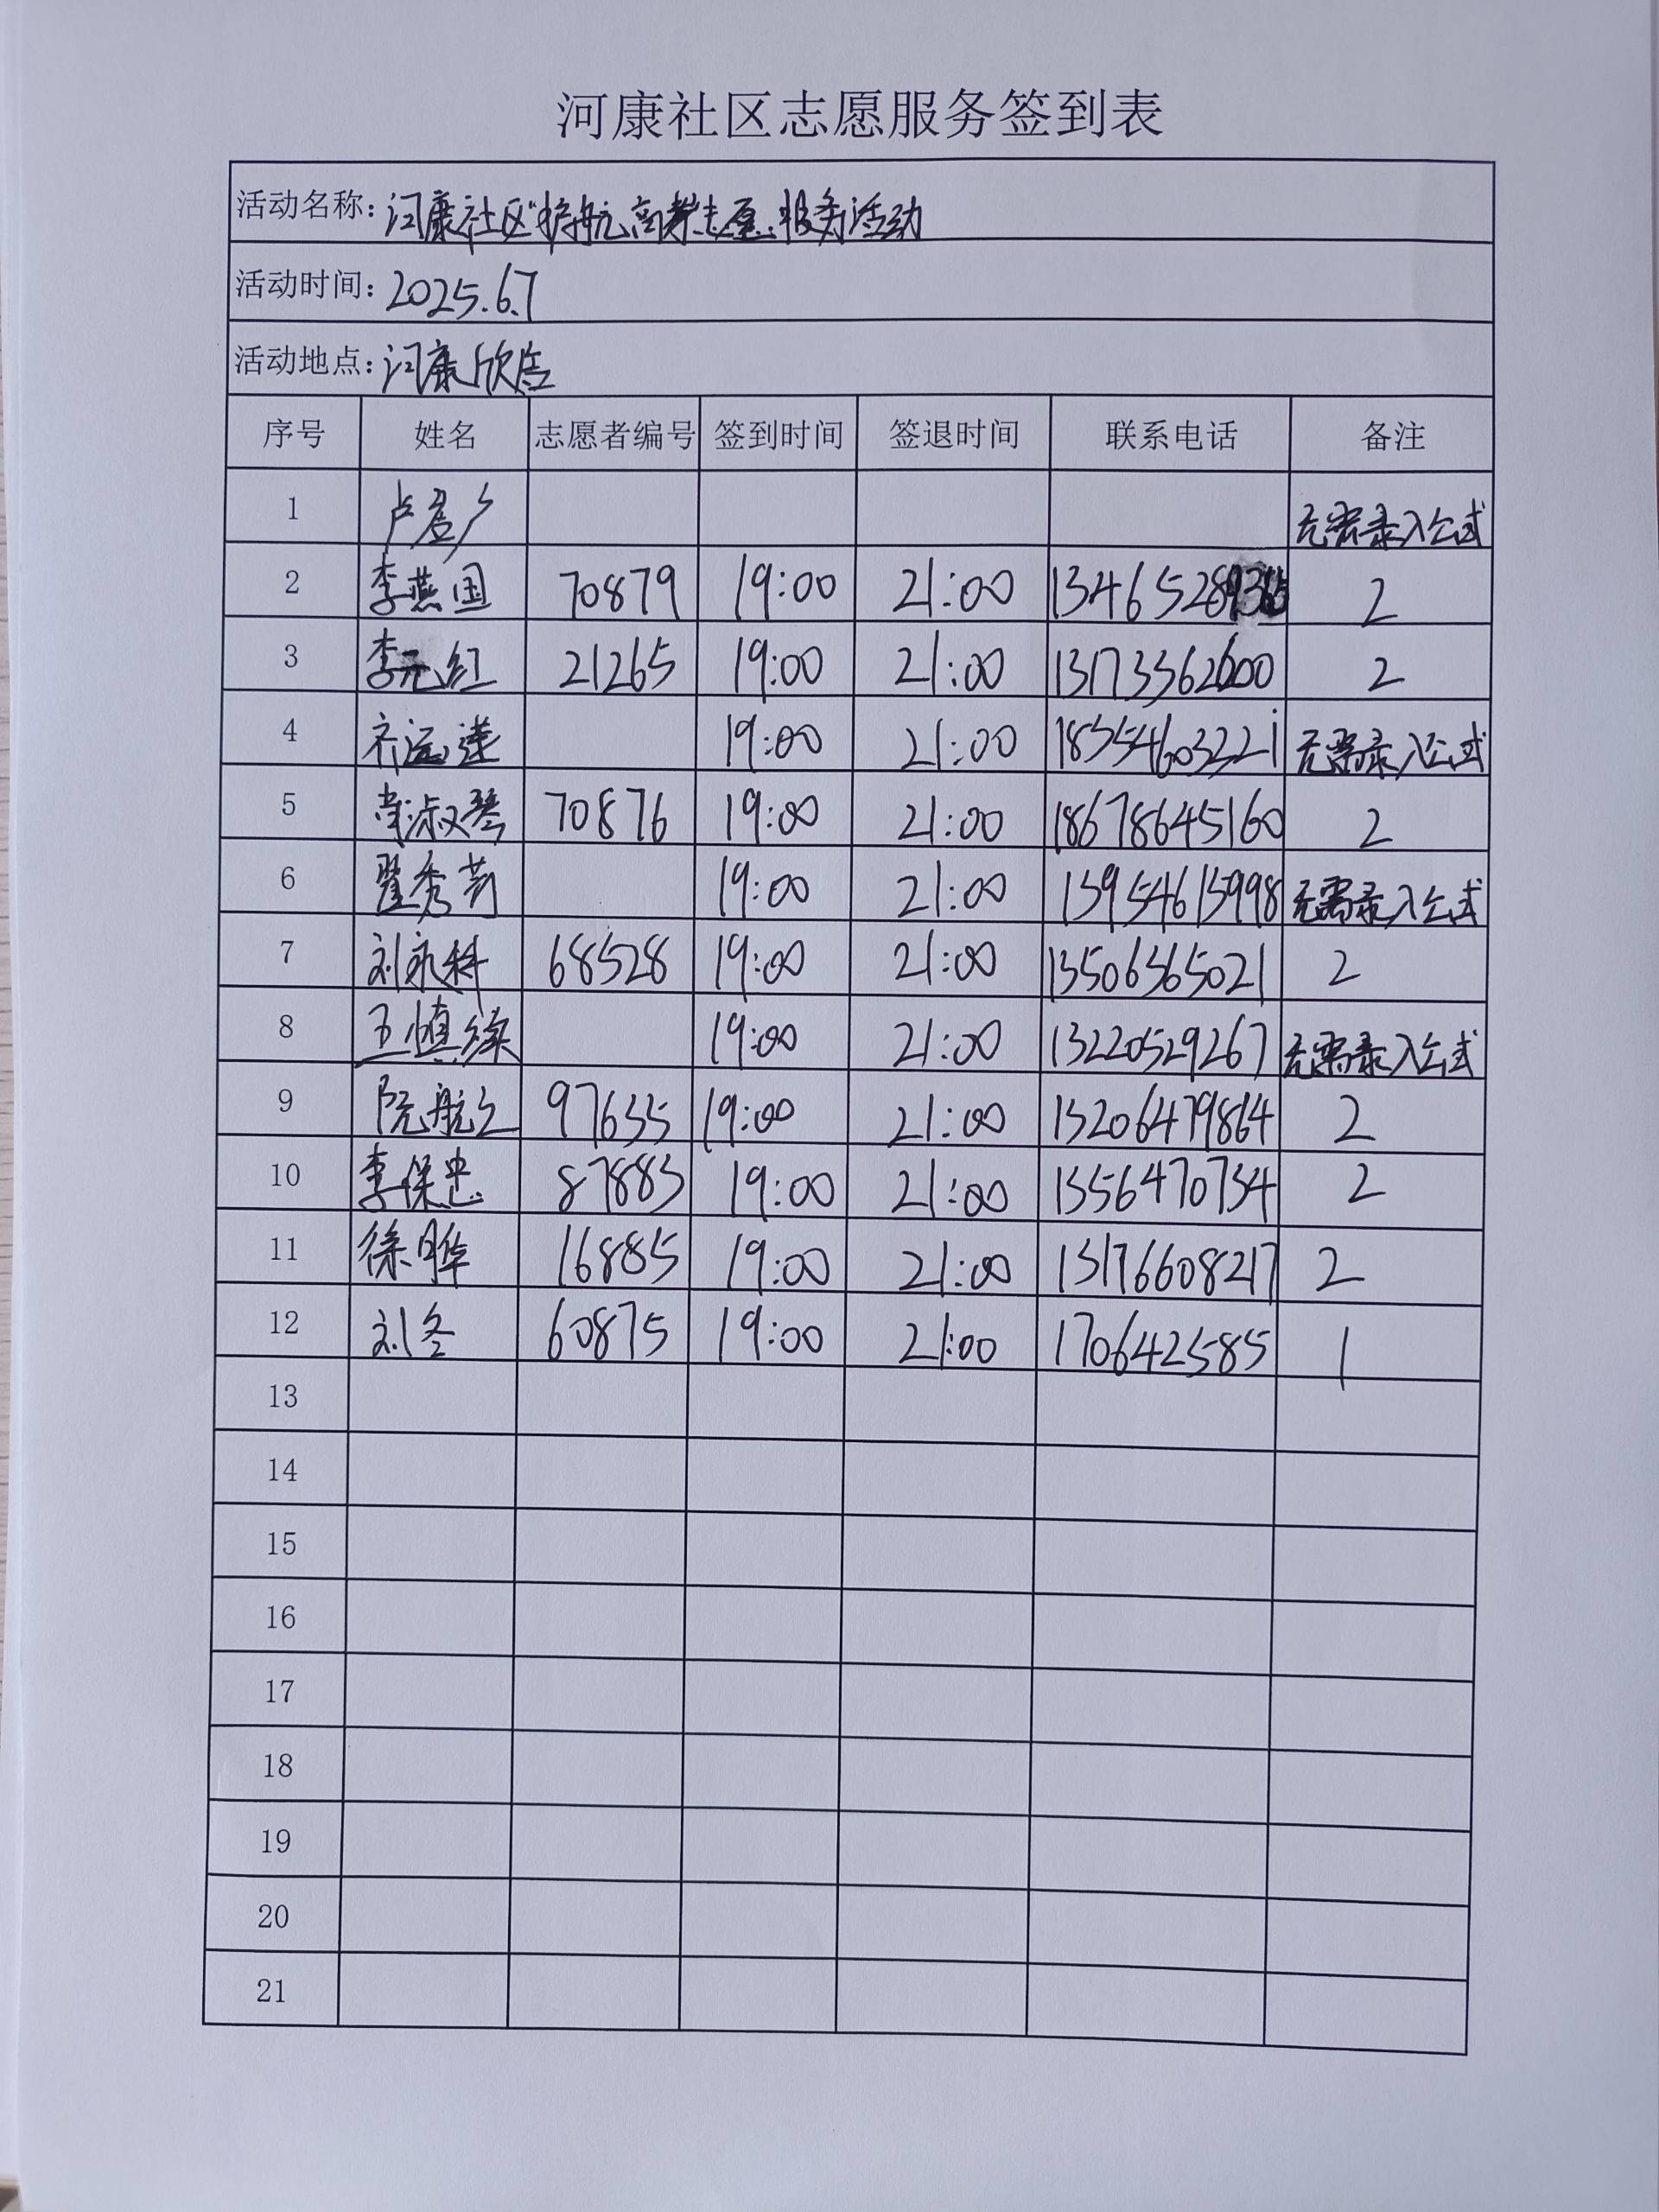 河康社区志愿服务签到表
活动名称: 河康社区"护航高考志愿服务活动
活动时间: 2025.6.7
活动地点: 河康欣居
序号 姓名 志愿者编号 签到时间 签退时间 联系电话 备注
1 无需录入公式
2 李燕国 70879 19:00 21:00 2
3 李元红 21265 19:00 21:00 13173362600 2
4 齐远莲 19:00 21:00 18354603221 无需录入公式
5 尚淑琴 70876 19:00 21:00 18678645160 2
6 翟秀芳 19:00 21:00 13954615998 无需录入公式
7 刘永科 68528 19:00 21:00 13506365021 2
8 王慎续 19:00 21:00 13220529267 无需录入公式
9 阮航之 97635 19:00 21:00 13206479864 2
10 李保忠 87883 19:00 21:00 1356470734 2
11 徐晔 16885 19:00 21:00 13176608217 2
12 刘冬 60875 19:00 21:00 170642585 1
13
14
15
16
17
18
19
20
21